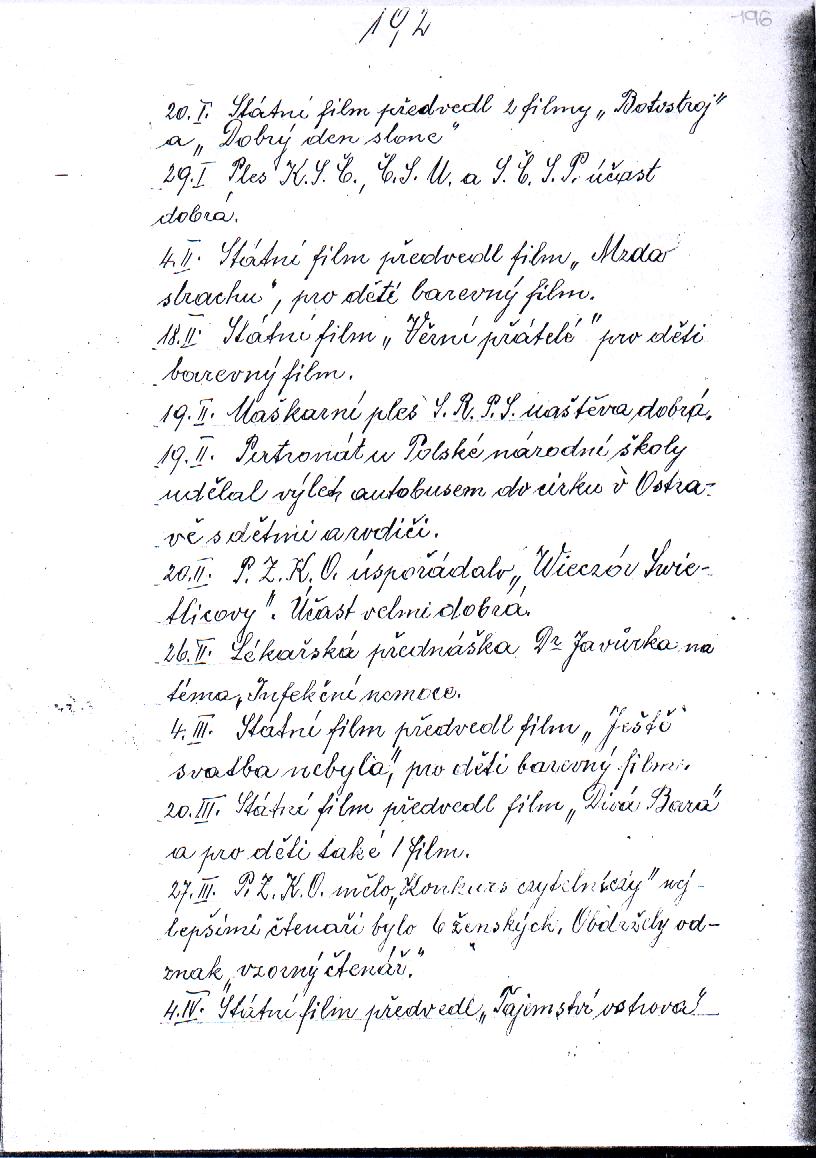 192
196
20.I. Státní film předvedl 2 filmy „Botostroj"
a „Dobrý den slone"
29.I Ples K.S.Č., Č.S.M. a S.Č.S.P. účast
dobrá.
4.II. Státní film předvedl film „Mzda
strachu", pro děti barevný film.
18.II. Státní film „Věrní přátelé" pro děti
barevný film.
19.II. Maškarní ples S.R.P.S. naštěva dobrá.
19.II. Patronát u Polské národní školy
udělal výlet autobusem do cirku v Ostra-
vě s dětmi a rodiči.
20.II. P.Z.K.O. úspořádalo „Wieczór Swie-
tlicovy". Účast velmi dobrá.
26.II. Lékařská přednáška Dr Javůrka na
téma, Infekční nemoce.
4.III. Státní film předvedl film „Ještě
svatba nebyla", pro děti barevný film.
20.III. Státní film předvedl film „Divá Bara"
a pro děti také 1 film.
27.III. P.Z.K.O. mělo „Konkurs czytelniczy" nej-
lepšími čtenaři bylo 6 ženských. Obdržely od-
znak „vzorný čtenář."
4.IV. Státní film předvedl „Tajemství ostrova"